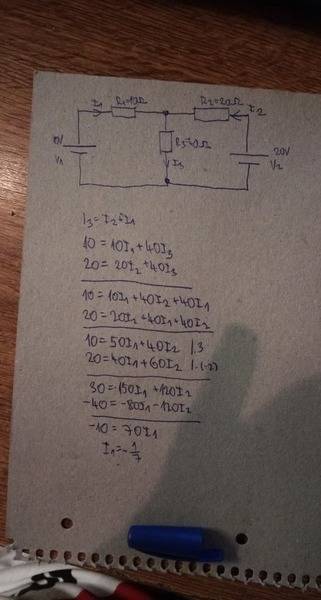 I1 R1=10Ω R2=20Ω I2
10V V1 R3=40Ω I3 20V V2
I3=I2+I1
10=10I1+40I3
20=20I2+40I3
10=10I1+40I2+40I1
20=20I2+40I1+40I2
10=50I1+40I2 |.3
20=40I1+60I2 |.(-2)
30=150I1+120I2
-40=-80I1-120I2
-10=70I1
I1=-1/7